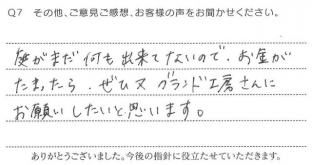 Q7 その他、ご意見ご感想、お客様の声をお聞かせください。
庭がまだ何も出来てないので、お金が
たまったら、ぜひ又グランド工房さんに
お願いしたいと思います。
ありがとうございました。今後の指針に役立たせていただきます。